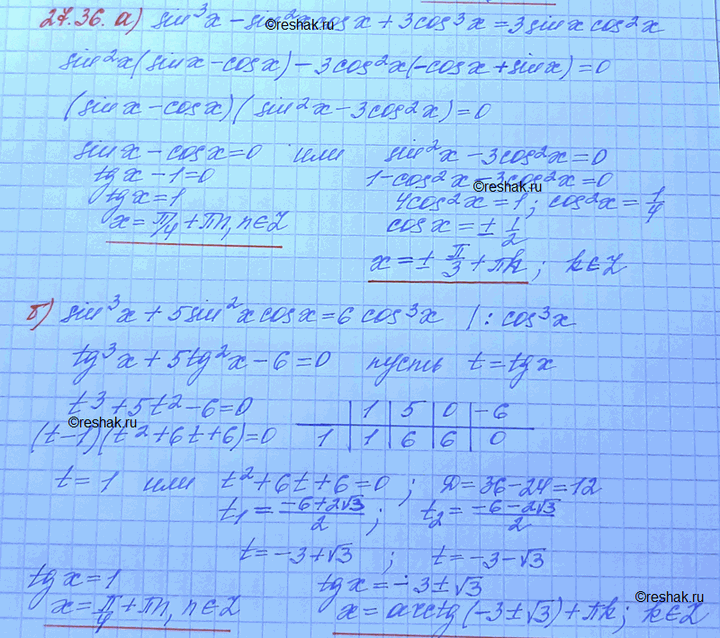 27.36. а) sin³x − sin²x cos x + 3cos³x = 3 sin x cos²x
©reshak.ru
sin²x (sin x − cos x) − 3cos²x (−cos x + sin x) = 0
(sin x − cos x)(sin²x − 3cos²x) = 0
sin x − cos x = 0 или sin²x − 3cos²x = 0
tg x − 1 = 0 1 − cos²x − 3cos²x = 0
©reshak.ru
tg x = 1 4cos²x = 1; cos²x = 1/4
x = π/4 + πn, n ∈ Z cos x = ± 1/2
x = ± π/3 + πk; k ∈ Z
б) sin³x + 5 sin²x cos x = 6 cos³x | : cos³x
tg³x + 5tg²x − 6 = 0 пусть t = tg x
t³ + 5t² − 6 = 0 1 | 5 | 0 | −6
©reshak.ru
(t−1)(t² + 6t + 6) = 0 1 | 1 | 6 | 6 | 0
t = 1 или t² + 6t + 6 = 0; D = 36 − 24 = 12
t₁ = (−6 + 2√3)/2; t₂ = (−6 − 2√3)/2
t = −3 + √3; t = −3 − √3
tg x = 1 tg x = −3 ± √3
©reshak.ru
x = π/4 + πn, n ∈ Z x = arctg (−3 ± √3) + πk; k ∈ Z